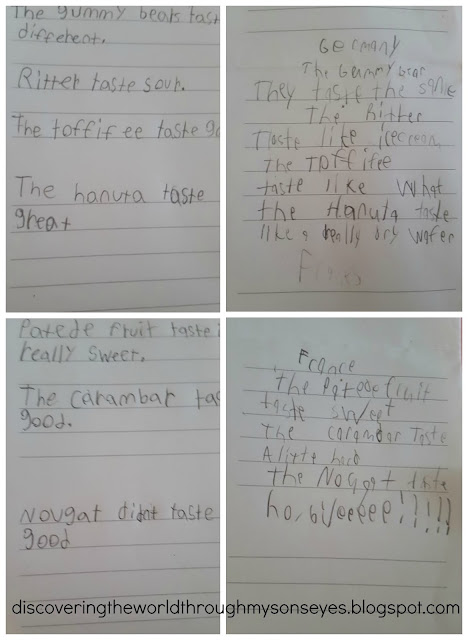 The gummy bears tast
different.
Ritter taste sour.
The toffifee taste go
The hanuta taste
great
Germany
The Gummy bear
They taste the same
The Ritter
Taste like icecream
The Toffifee
taste like What
the Hanuta taste
like a really dry wafer
Patede fruit taste
really sweet.
The carambar tas
good.
Nougat didnt taste
good
France
The Patedefruit
taste sweet
The carambar Taste
A little hard
the Nougat taste
discoveringtheworldthroughmysonseyes.blogspot.com